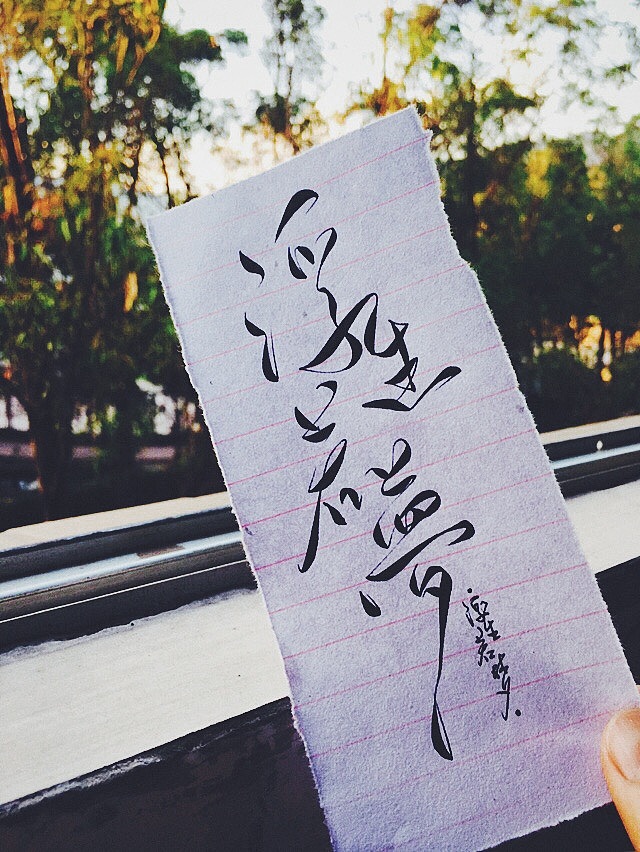 浮生若夢
浮生若梦.